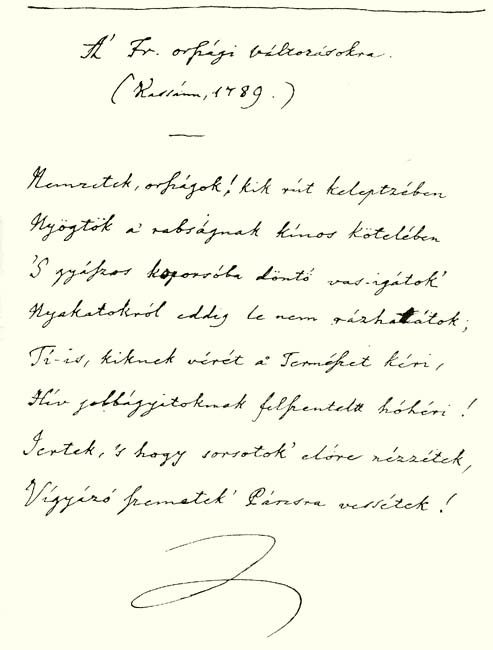 A' Fr. országi változásokra.
(Kassánn, 1789.)
Nemzetek, országok! kik rút keleptzében
Nyögtök a' rabságnak kínos kötelében
'S gyászos koporsóba döntő vas-igátok'
Nyakatokról eddig le nem rázhattátok;
Ti-is, kiknek vérét a' Természet kéri,
Hív jobbágyitoknak felszentelt hóhéri!
Jertek, 's hogy sorsotok' előre nézzétek,
Vígyázó szemetek' Párisra vessétek!